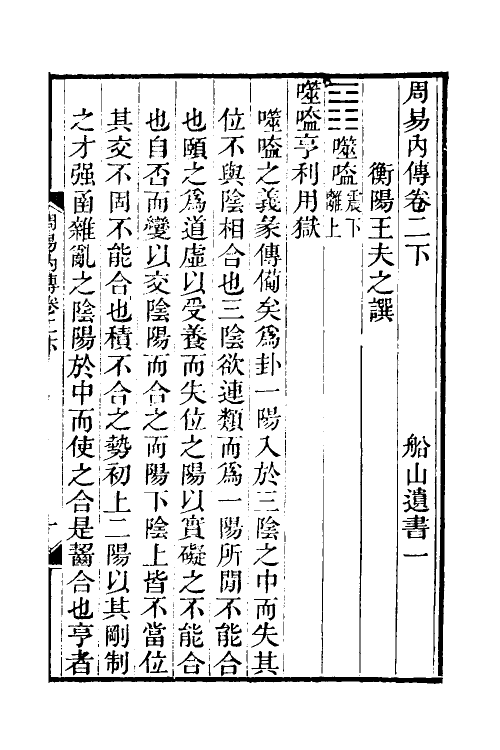 周易內傳卷二下
船山遺書一
衡陽王夫之譔
噬嗑 震下 離上
噬嗑亨利用獄
噬嗑之義彖傳備矣爲卦一陽入於三陰之中而失其
位不與陰相合也三陰欲連類而爲一陽所閒不能合
也頤之爲道虛以受養而失位之陽以實礙之不能合
也自否而變以交陰陽而合之而陽下陰上皆不當位
其交不固不能合也積不合之勢初上二陽以其剛制
之才强函雜亂之陰陽於中而使之合是齧合也亨者
周易內傳卷二下